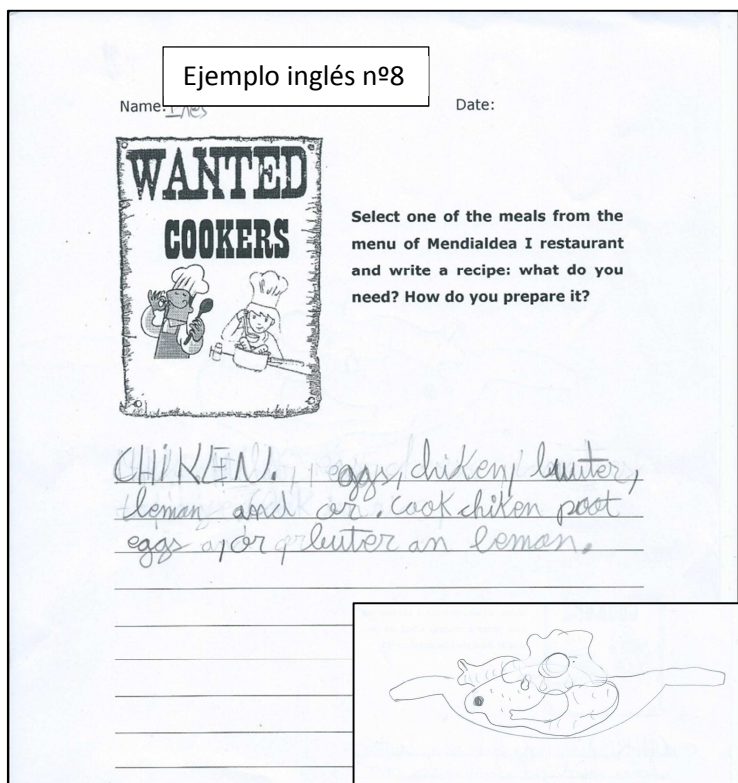 Ejemplo inglés nº8
Name: Ines
Date:
WANTED
COOKERS
Select one of the meals from the
menu of Mendialdea I restaurant
and write a recipe: what do you
need? How do you prepare it?
CHIKEN. eggs, chiken, buuter,
lleman and or. Cook chiken poot
eggs a, or buter an lemon.